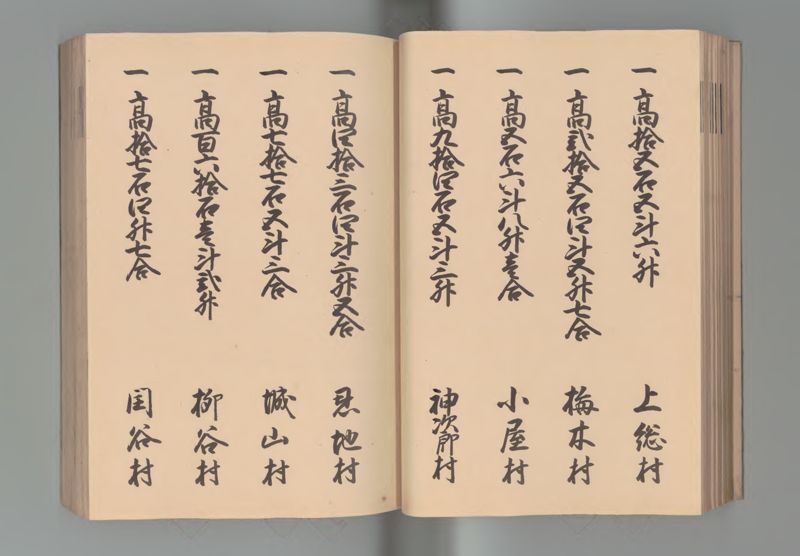 一高拾五石五斗六升 上総村
一高弐拾五石四斗五升七合 梅木村
一高五石六斗八升壱合 小屋村
一高九拾四石五斗三升 神次郎村
一高四拾三石四斗三升五合 忍地村
一高七拾七石五斗三合 城山村
一高百六拾石壱斗弐升 柳谷村
一高拾七石四升七合 谷村